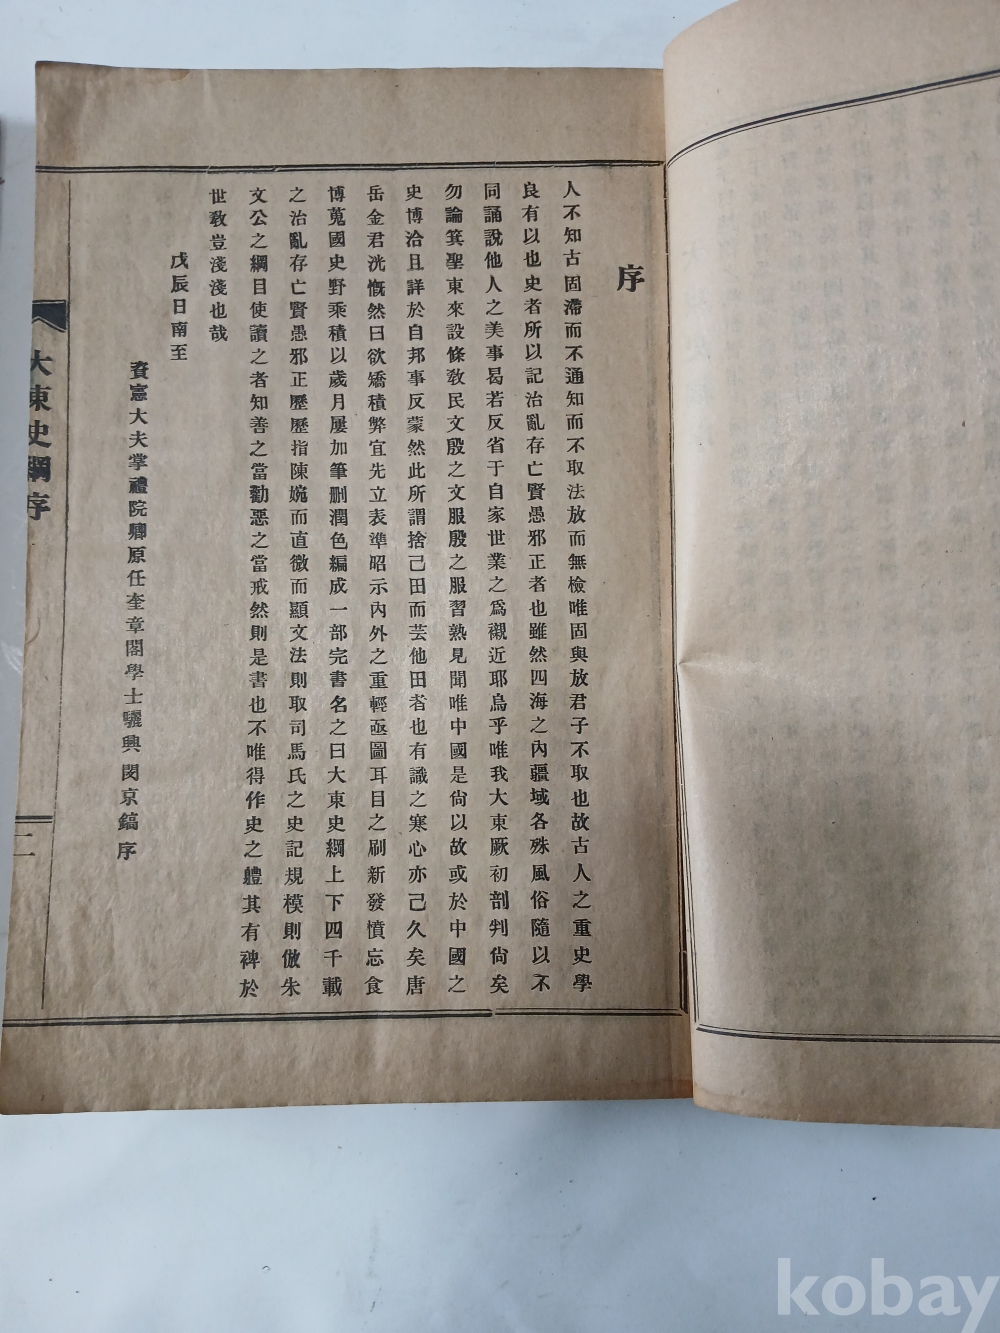 序
人不知古固滯而不通知而不取法放而無檢唯固與放君子不取也故古人之重史學
良有以也史者所以記治亂存亡賢愚邪正者也雖然四海之內疆域各殊風俗隨以不
同誦說他人之美事曷若反省于自家世業之爲襯近耶烏乎唯我大東厥初剖判尙矣
勿論箕聖東來設條敎民文殷之文服殷之服習熟見聞唯中國是尙以故或於中國之
史博洽且詳於自邦事反蒙然此所謂捨己田而芸他田者也有識之寒心亦己久矣唐
岳金君洸慨然曰欲矯積弊宜先立表準昭示內外之重輕亟圖耳目之刷新發憤忘食
博蒐國史野乘積以歲月屢加筆删潤色編成一部完書名之曰大東史綱上下四千載
之治亂存亡賢愚邪正歷歷指陳婉而直微而顯文法則取司馬氏之史記規模則倣朱
文公之綱目使讀之者知善之當勸惡之當戒然則是書也不唯得作史之軆其有裨於
世敎豈淺淺也哉
戊辰日南至
資憲大夫掌禮院卿原任奎章閣學士驪興閔京鎬序
大東史綱序
二
kobay